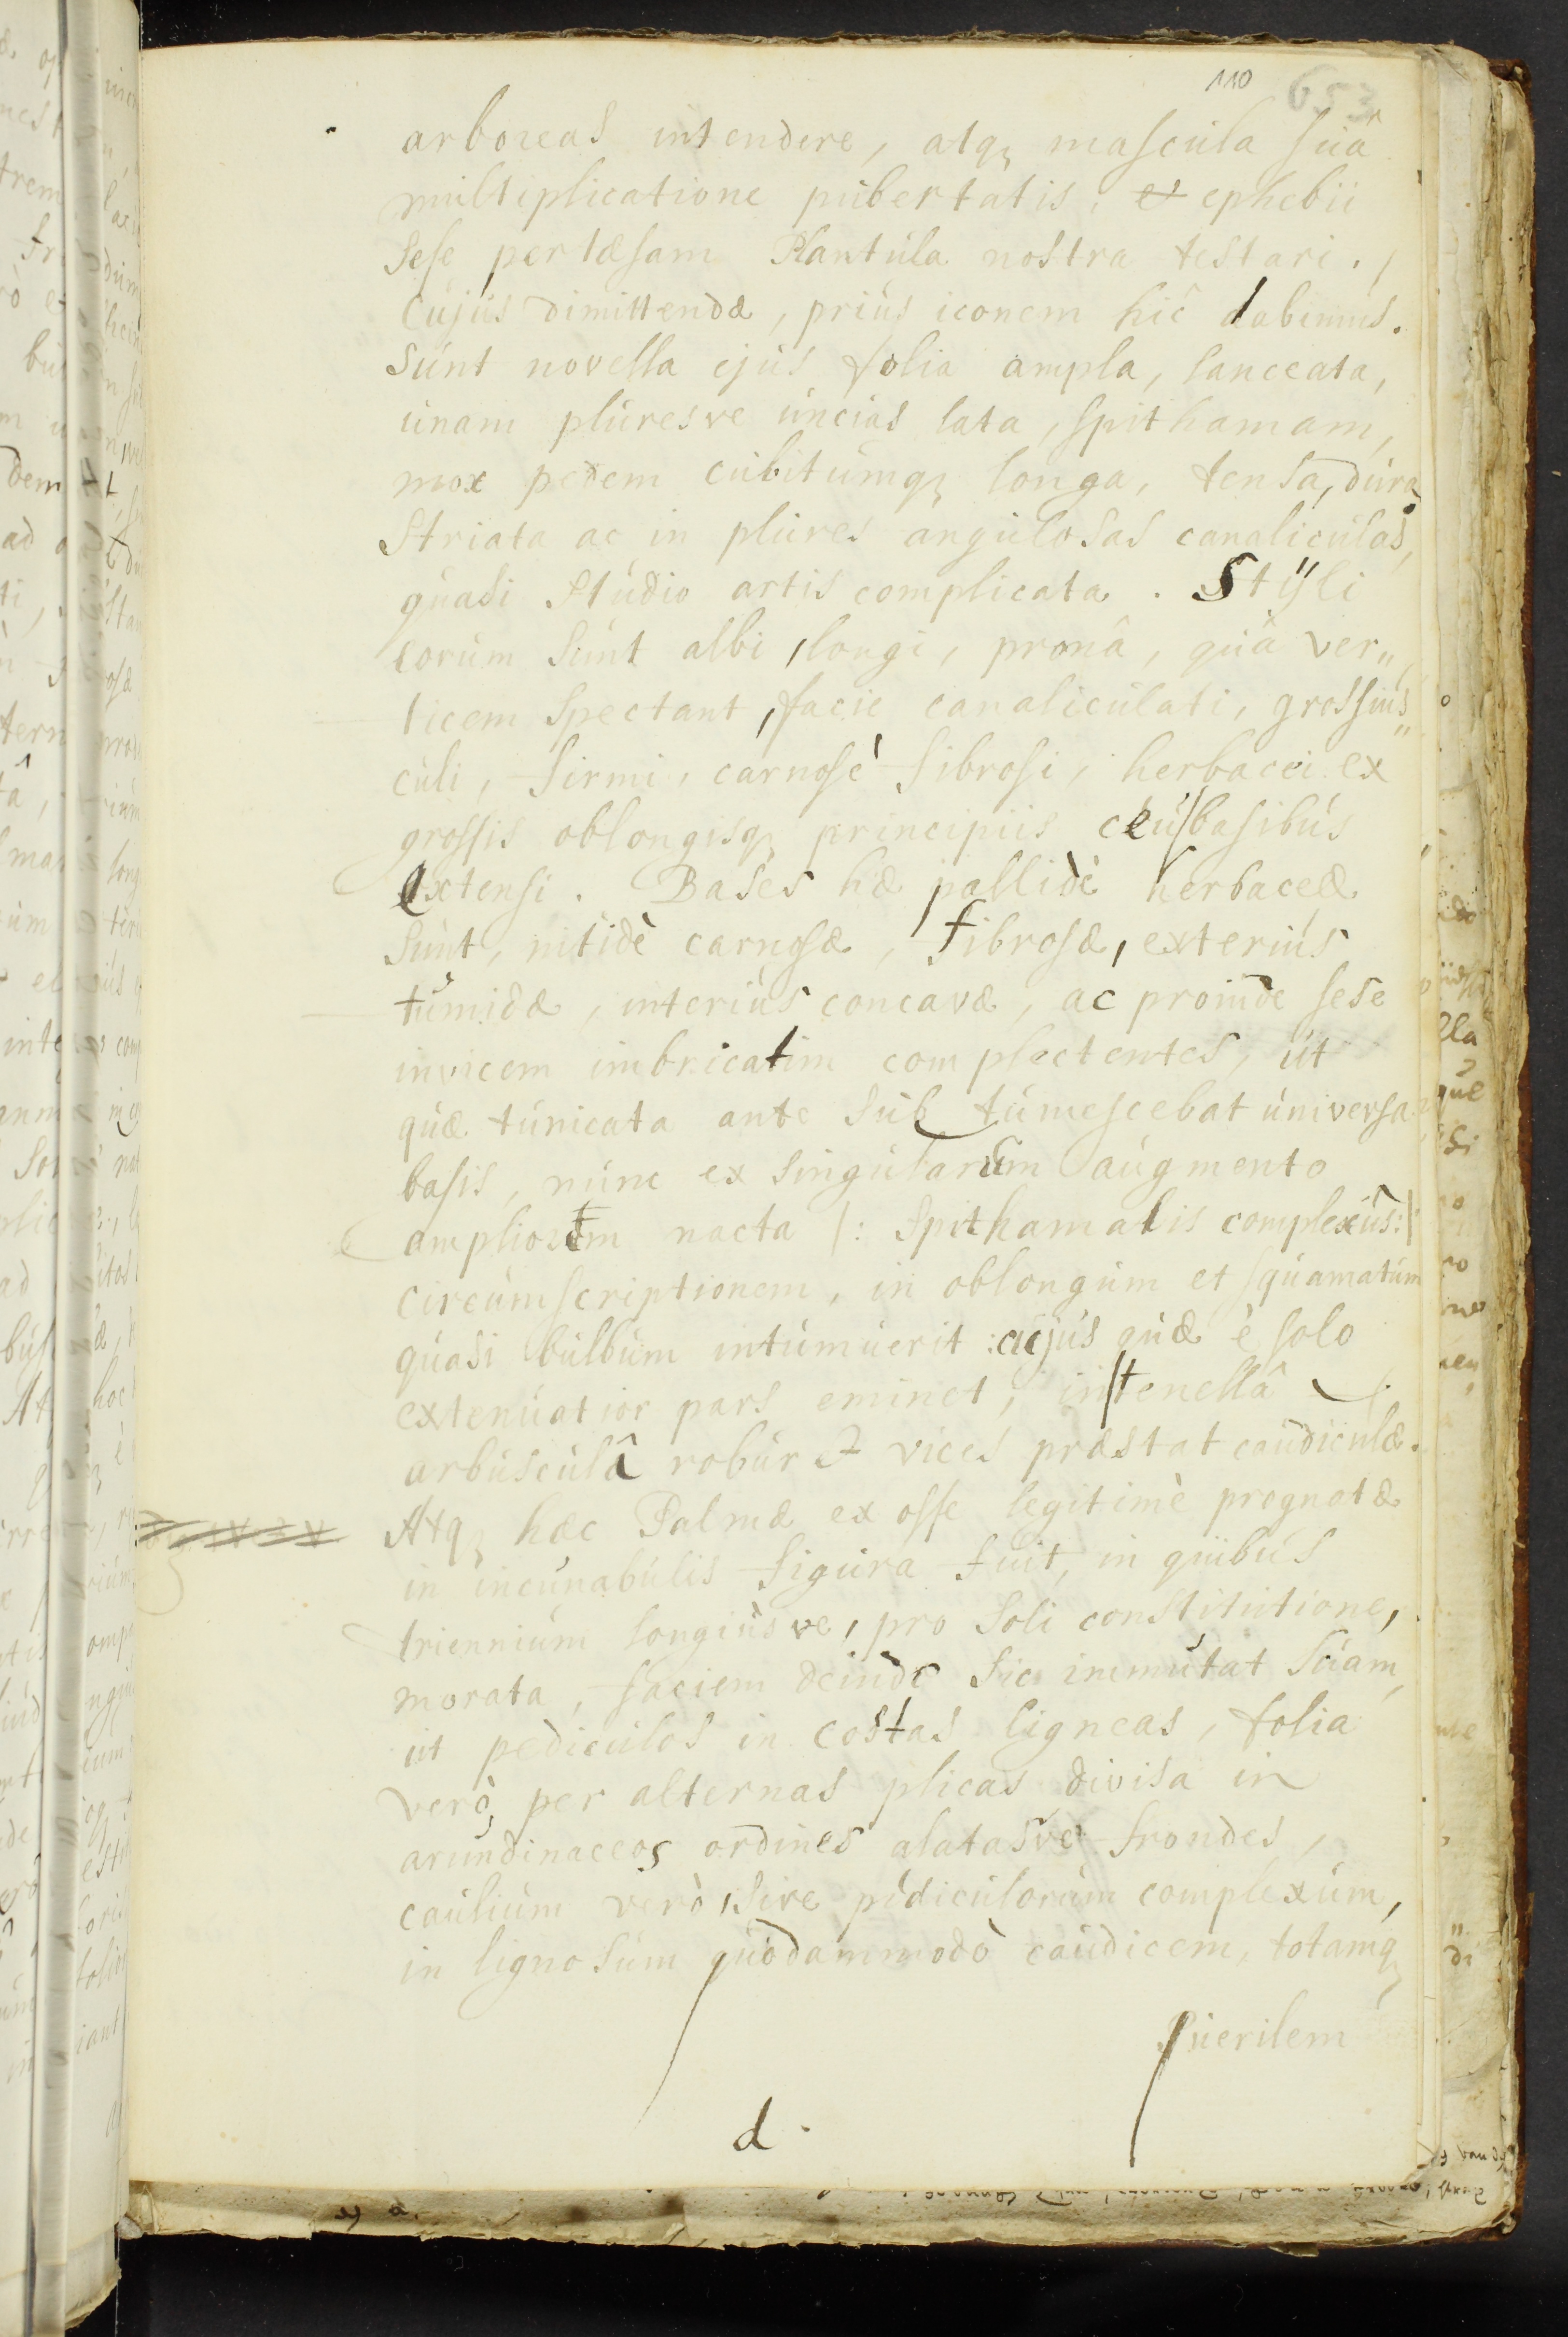 110 653
arboreas intendere, atq; mascula suâ
multiplicatione pubertatis, et ephebii
sese pertæsam Plantula nostra testari.
Cujus dimittendæ, prius iconem hîc dabimus.
Sunt novella ejus folia ampla, lanceata,
unam pluresve uncias lata, spithamam,
mox pedem cubitumq; longa, tensa, dura,
striata ac in plures angulosas canaliculas,
quasi studio artis complicata. Stÿli
eorum sunt albi, longi, pronâ, quâ ver„
ticem spectant, facie canaliculati, grossius„
culi, firmi, carnosè fibrosi, herbacei ex
grossis oblongisq; principiis ceu basibus
extensi. Bases hæ pallidè herbaceæ
sunt, nitidè carnosæ, fibrosæ, exterius
tumidæ, interius concavæ, ac proinde sese
invicem imbricatim complectentes, ut
quæ tunicata ante sub tumescebat universa
basis, nunc ex singularum augmento
ampliorem nacta |: spithamalis complexûs :|
circumscriptionem, in oblongum et squamatum
quasi bulbum intumuerit: cujus quæ è solo
extenuatior pars eminet, in tenellâ
arbusculâ robur et vices præstat caudiculæ.
Atq; hæc Palmæ ex osse legitimè prognatæ
in incunabulis figura fuit, in quibus
triennium longiùsve, pro soli constitutione,
morata, faciem deinde sic immutat suam,
ut pediculos in costas ligneas, folia
verò per alternas plicas divisa in
arundinaceos ordines alatasve frondes,
caulium verò, sive pediculorum complexum,
in lignosum quodammodò caudicem, totamq;
Puerilem
d.